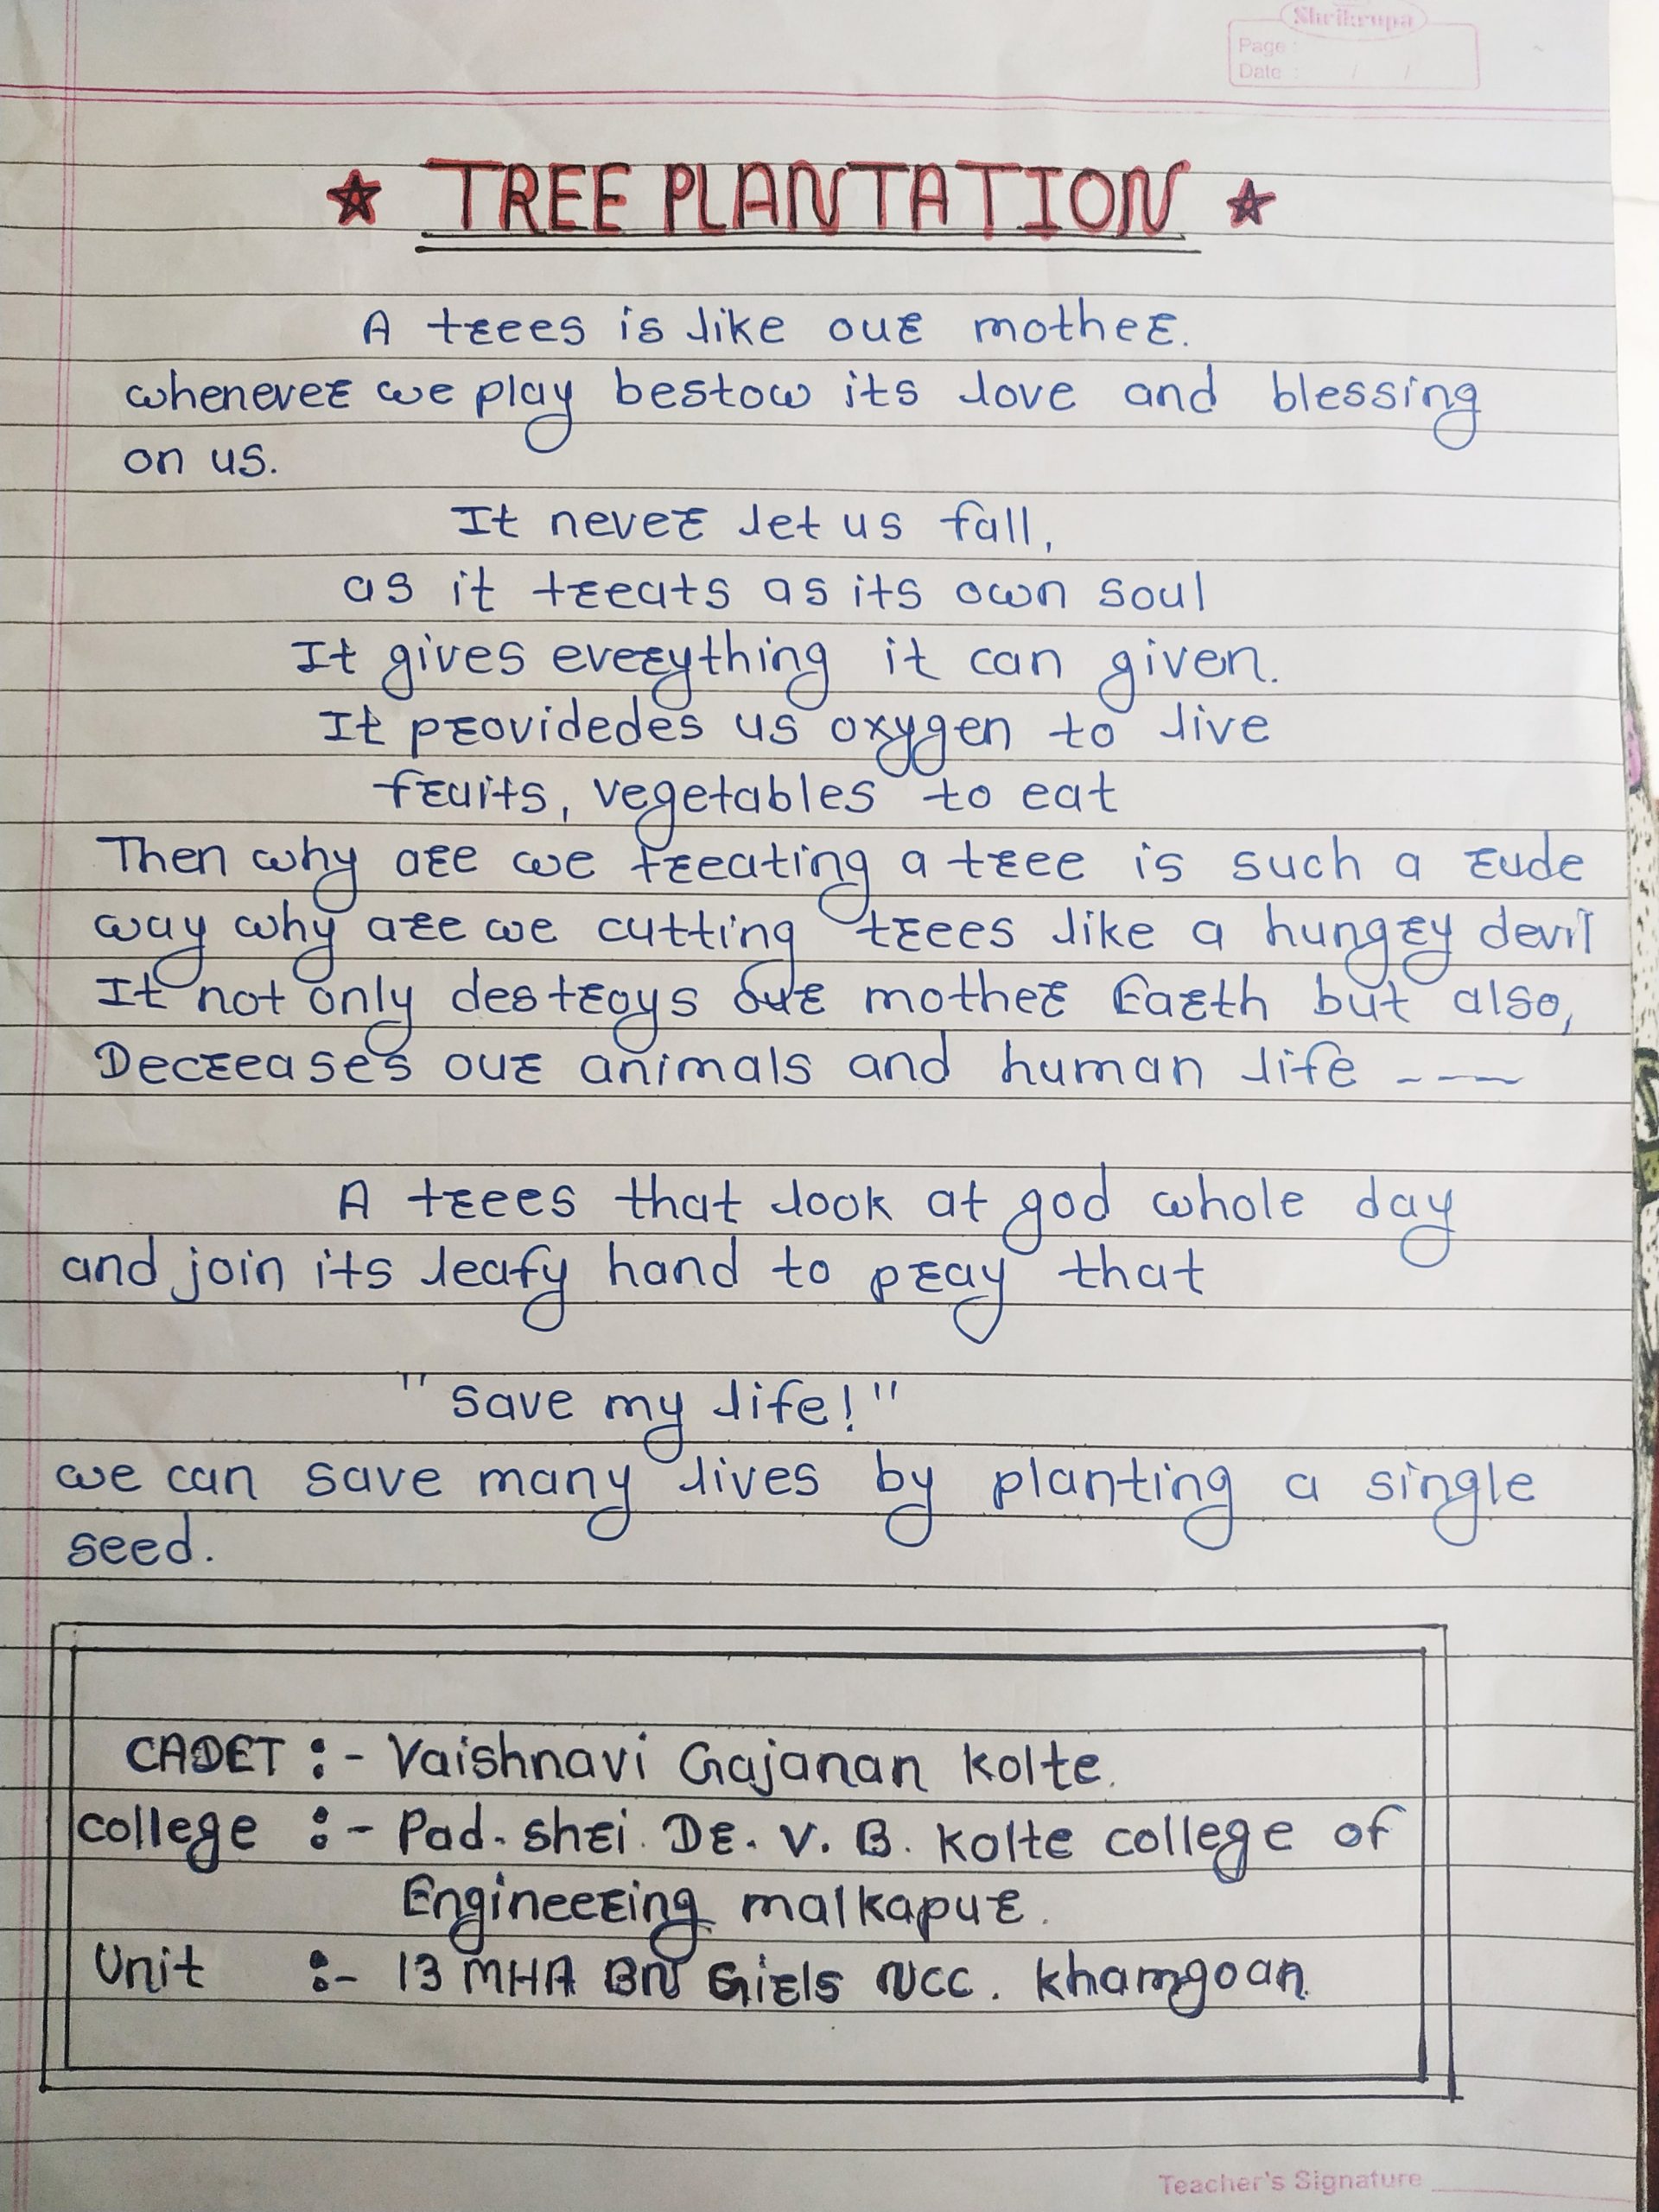 Shrikrupa
Page :
Date : / /
★ TREE PLANTATION ★
A trees is like our mother.
whenever we play bestow its love and blessing
on us.
It never let us fall,
as it treats as its own soul
It gives everything it can given.
It providedes us oxygen to live
fruits, vegetables to eat
Then why are we treating a tree is such a rude
way why are we cutting trees like a hungry devil
It not only destroys our mother Earth but also,
Decreases our animals and human life ----
A trees that look at god whole day
and join its leafy hand to pray that
"save my life!"
we can save many lives by planting a single
seed.
CADET :- Vaishnavi Gajanan Kolte.
college :- Pad. shri. Dr. V. B. Kolte college of
Engineering malkapur.
Unit :- 13 MHA BN Girls NCC. Khamgoan.
Teacher's Signature